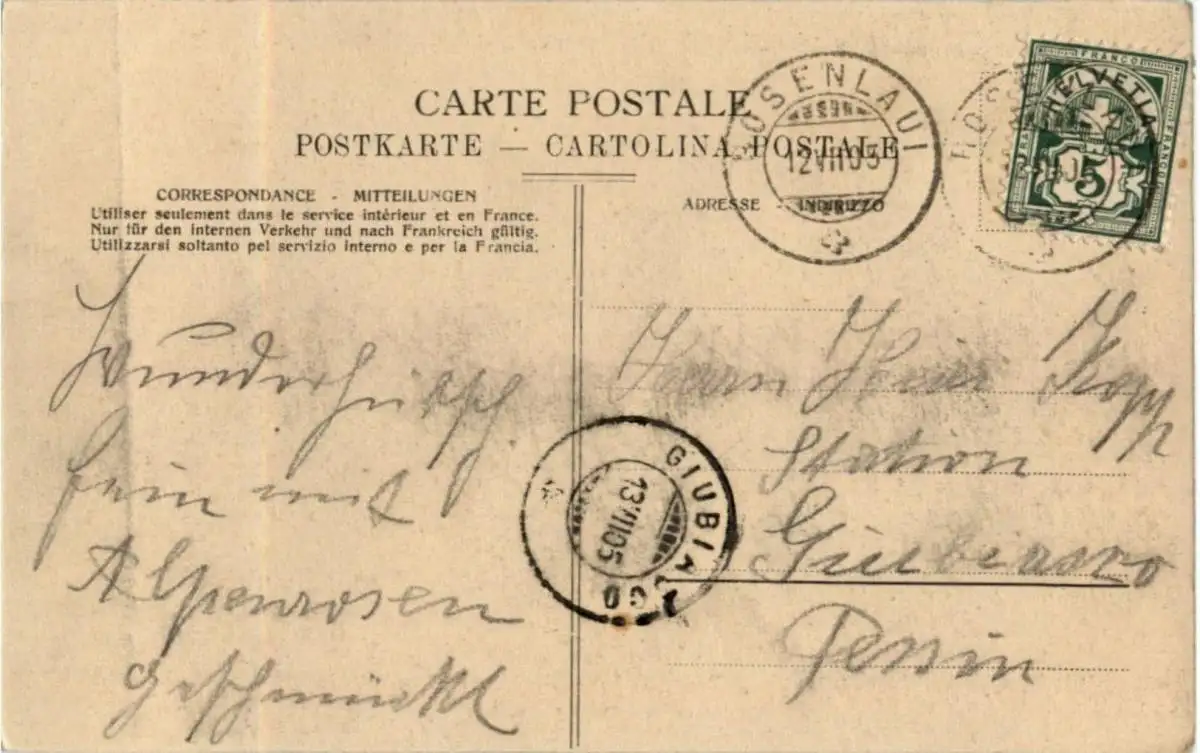 CARTE POSTALE
POSTKARTE — CARTOLINA POSTALE
CORRESPONDANCE - MITTEILUNGEN
Utiliser seulement dans le service intérieur et en France.
Nur für den internen Verkehr und nach Frankreich gültig.
Utilizzarsi soltanto pel servizio interno e per la Francia.
ADRESSE - INDIRIZZO
ROSENLAUI
12 VII 05
FRANCO
HELVETIA
5
Wunderhübsch
fein mit
Alpenrosen
geschmückt
Herrn Kopp
Station
Giubiasco
Tessin
GIUBIASCO
13 VII 05